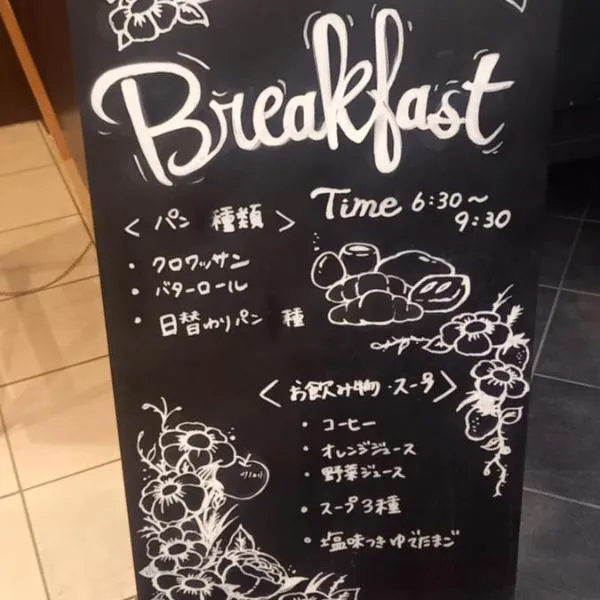 Breakfast
Time 6:30~
9:30
< パン 種類 >
・クロワッサン
・バターロール
・日替わりパン 種
< お飲み物・スープ >
・コーヒー
・オレンジジュース
・野菜ジュース
・スープ3種
・塩味つきゆでたまご